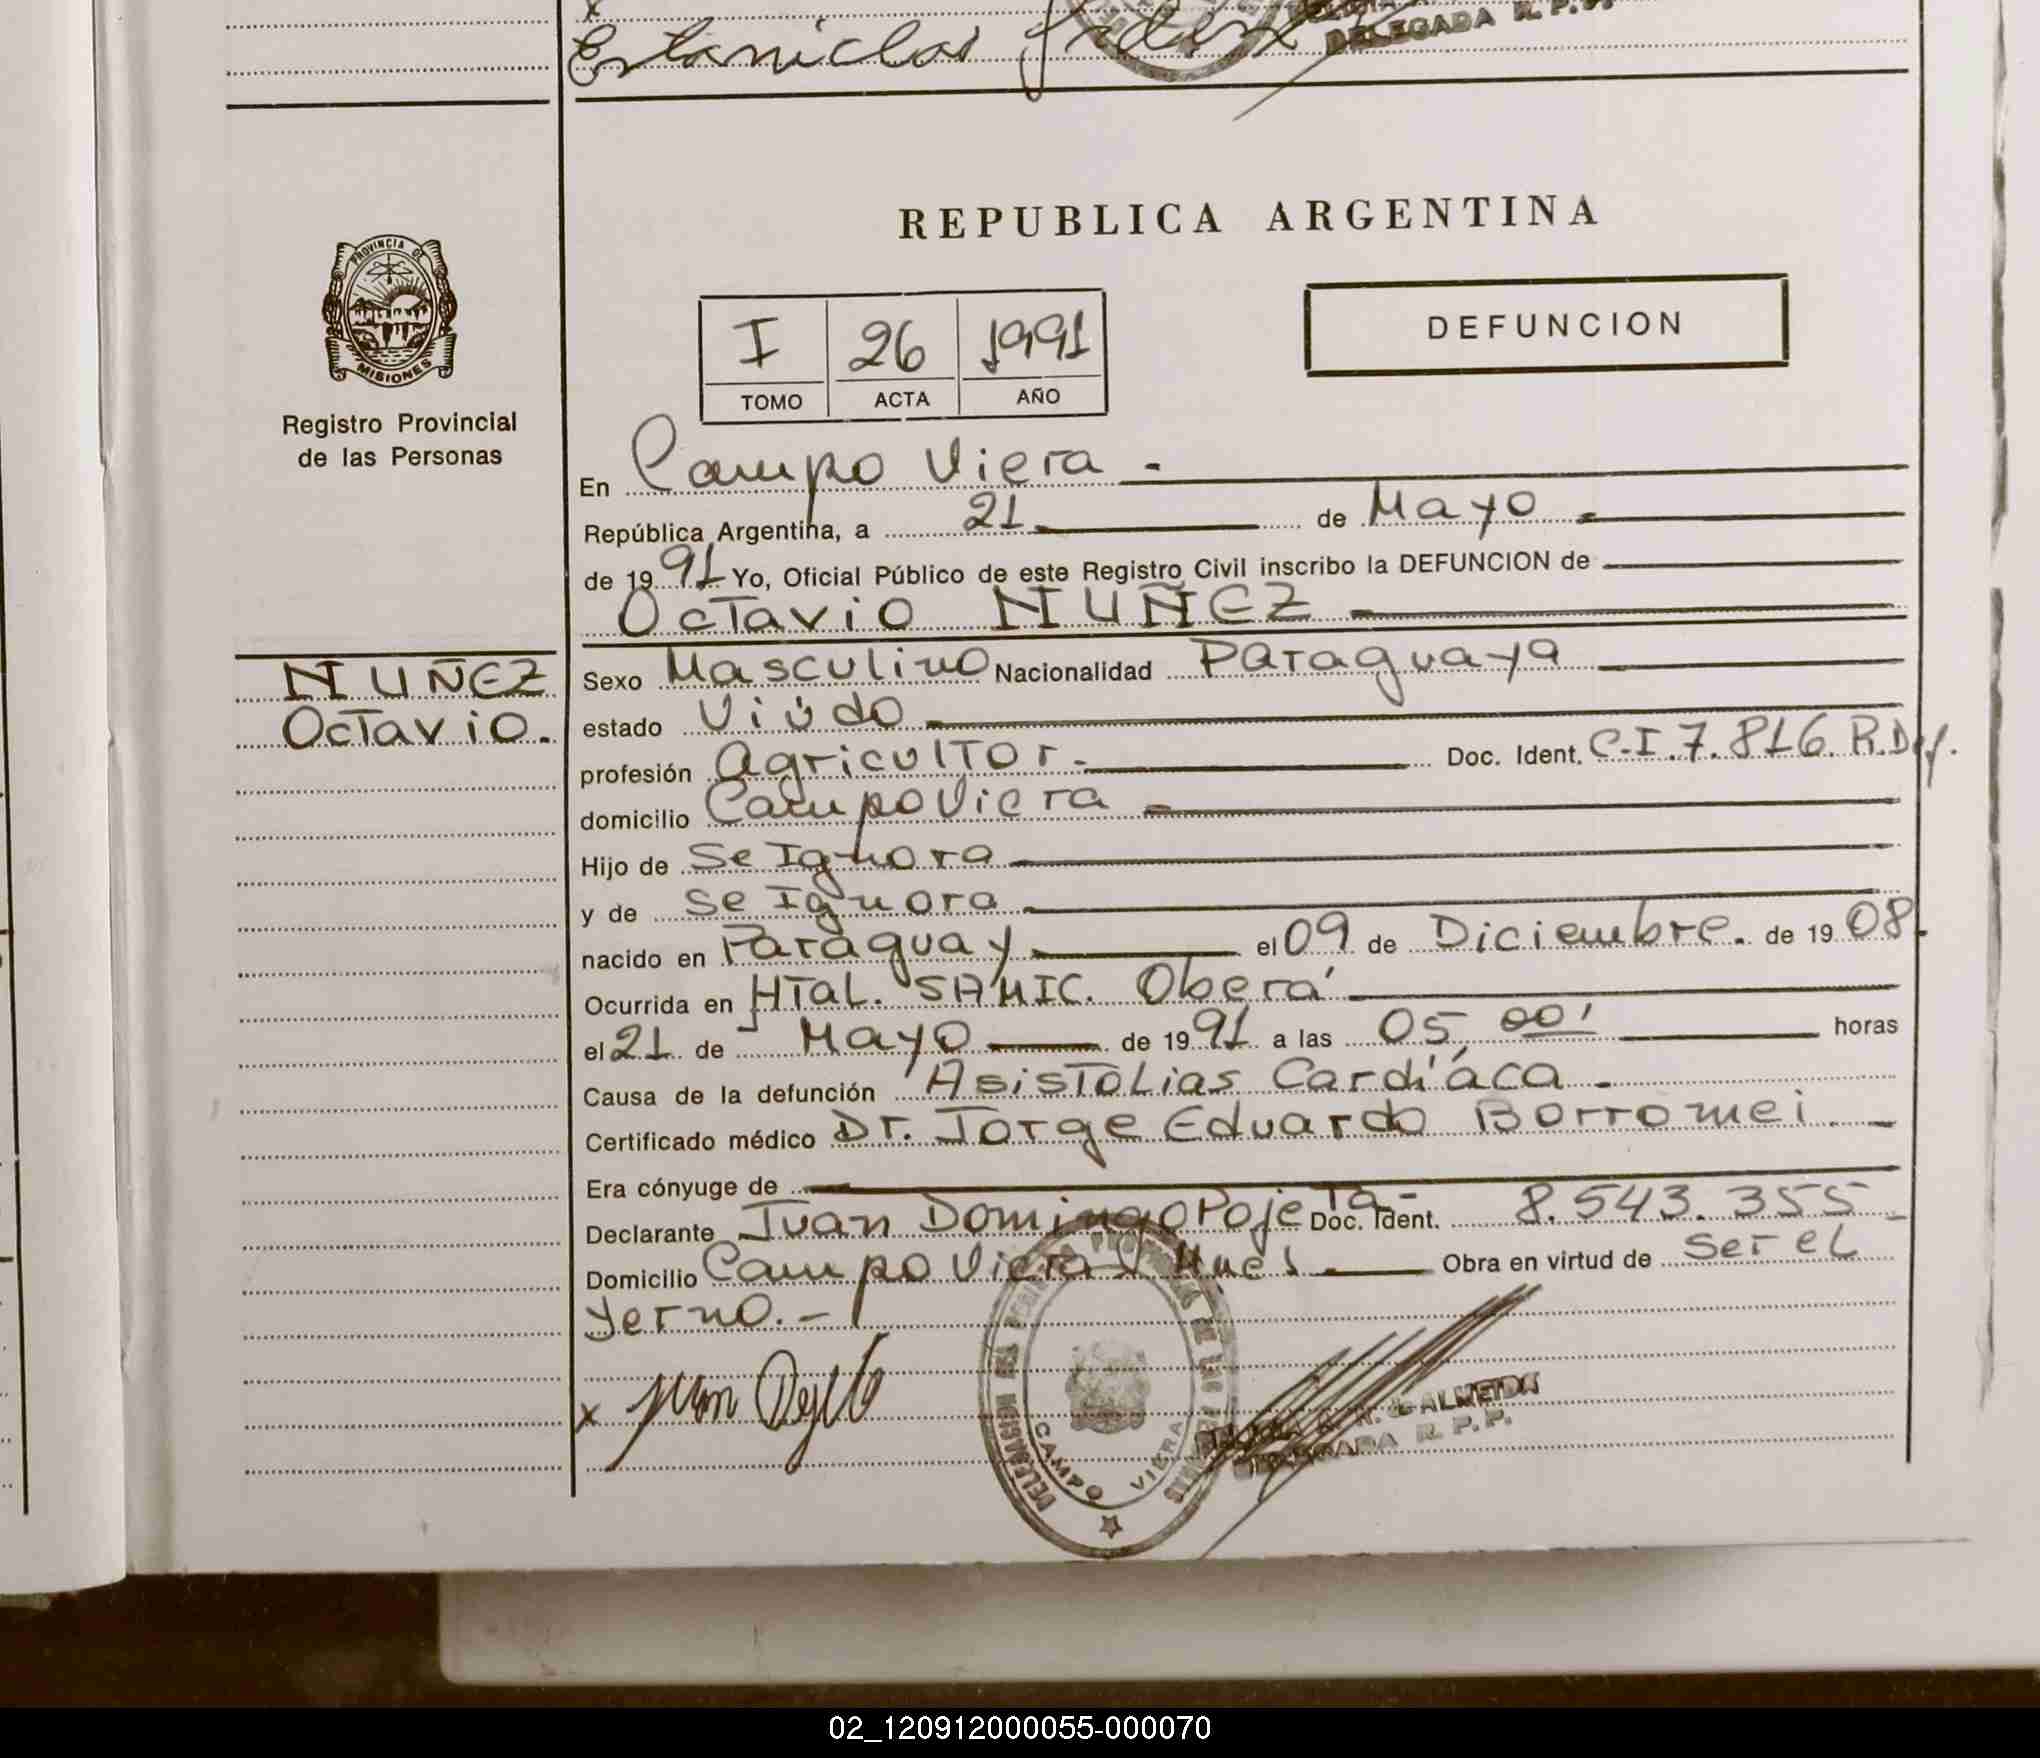 Estanislao
DELEGADA R. P. P.
PROVINCIA DE
MISIONES
Registro Provincial
de las Personas
REPUBLICA ARGENTINA
I 26 1991
TOMO ACTA AÑO
DEFUNCION
En Campo Viera -
República Argentina, a 21 de Mayo
de 1991 Yo, Oficial Público de este Registro Civil inscribo la DEFUNCION de
Octavio NUÑEZ
NUÑEZ
Octavio.
Sexo Masculino Nacionalidad Paraguaya
estado Viudo
profesión Agricultor.- Doc. Ident. C.I.7.816.R.Py.
domicilio Campo Viera
Hijo de Se Ignora
y de Se Ignora
nacido en Paraguay el 09 de Diciembre. de 1908.
Ocurrida en Htal. SAMIC. Oberá
el 21 de Mayo de 1991 a las 05,00' horas
Causa de la defunción Asistolias Cardíaca.
Certificado médico Dr. Jorge Eduardo Borromei -
Era cónyuge de
Declarante Juan Domingo Pojeta- Doc. Ident. 8.543.355
Domicilio Campo Viera Mnes Obra en virtud de ser el
yerno.-
x Juan
CAMPO VIERA
ALMEIDA
DELEGADA R. P. P.
02_120912000055-000070